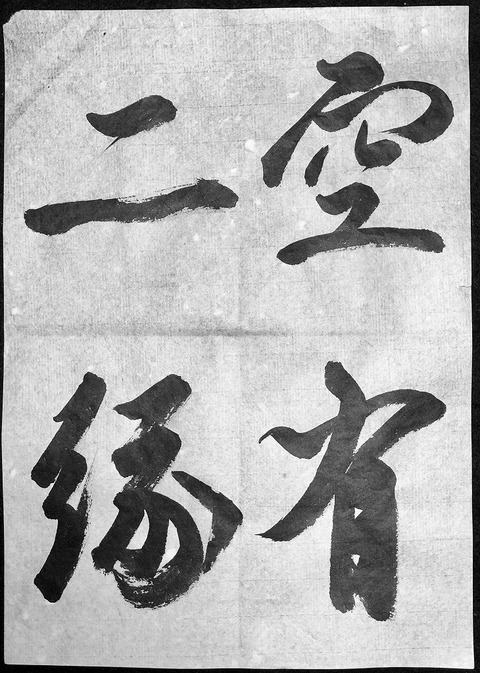 空有
二緣